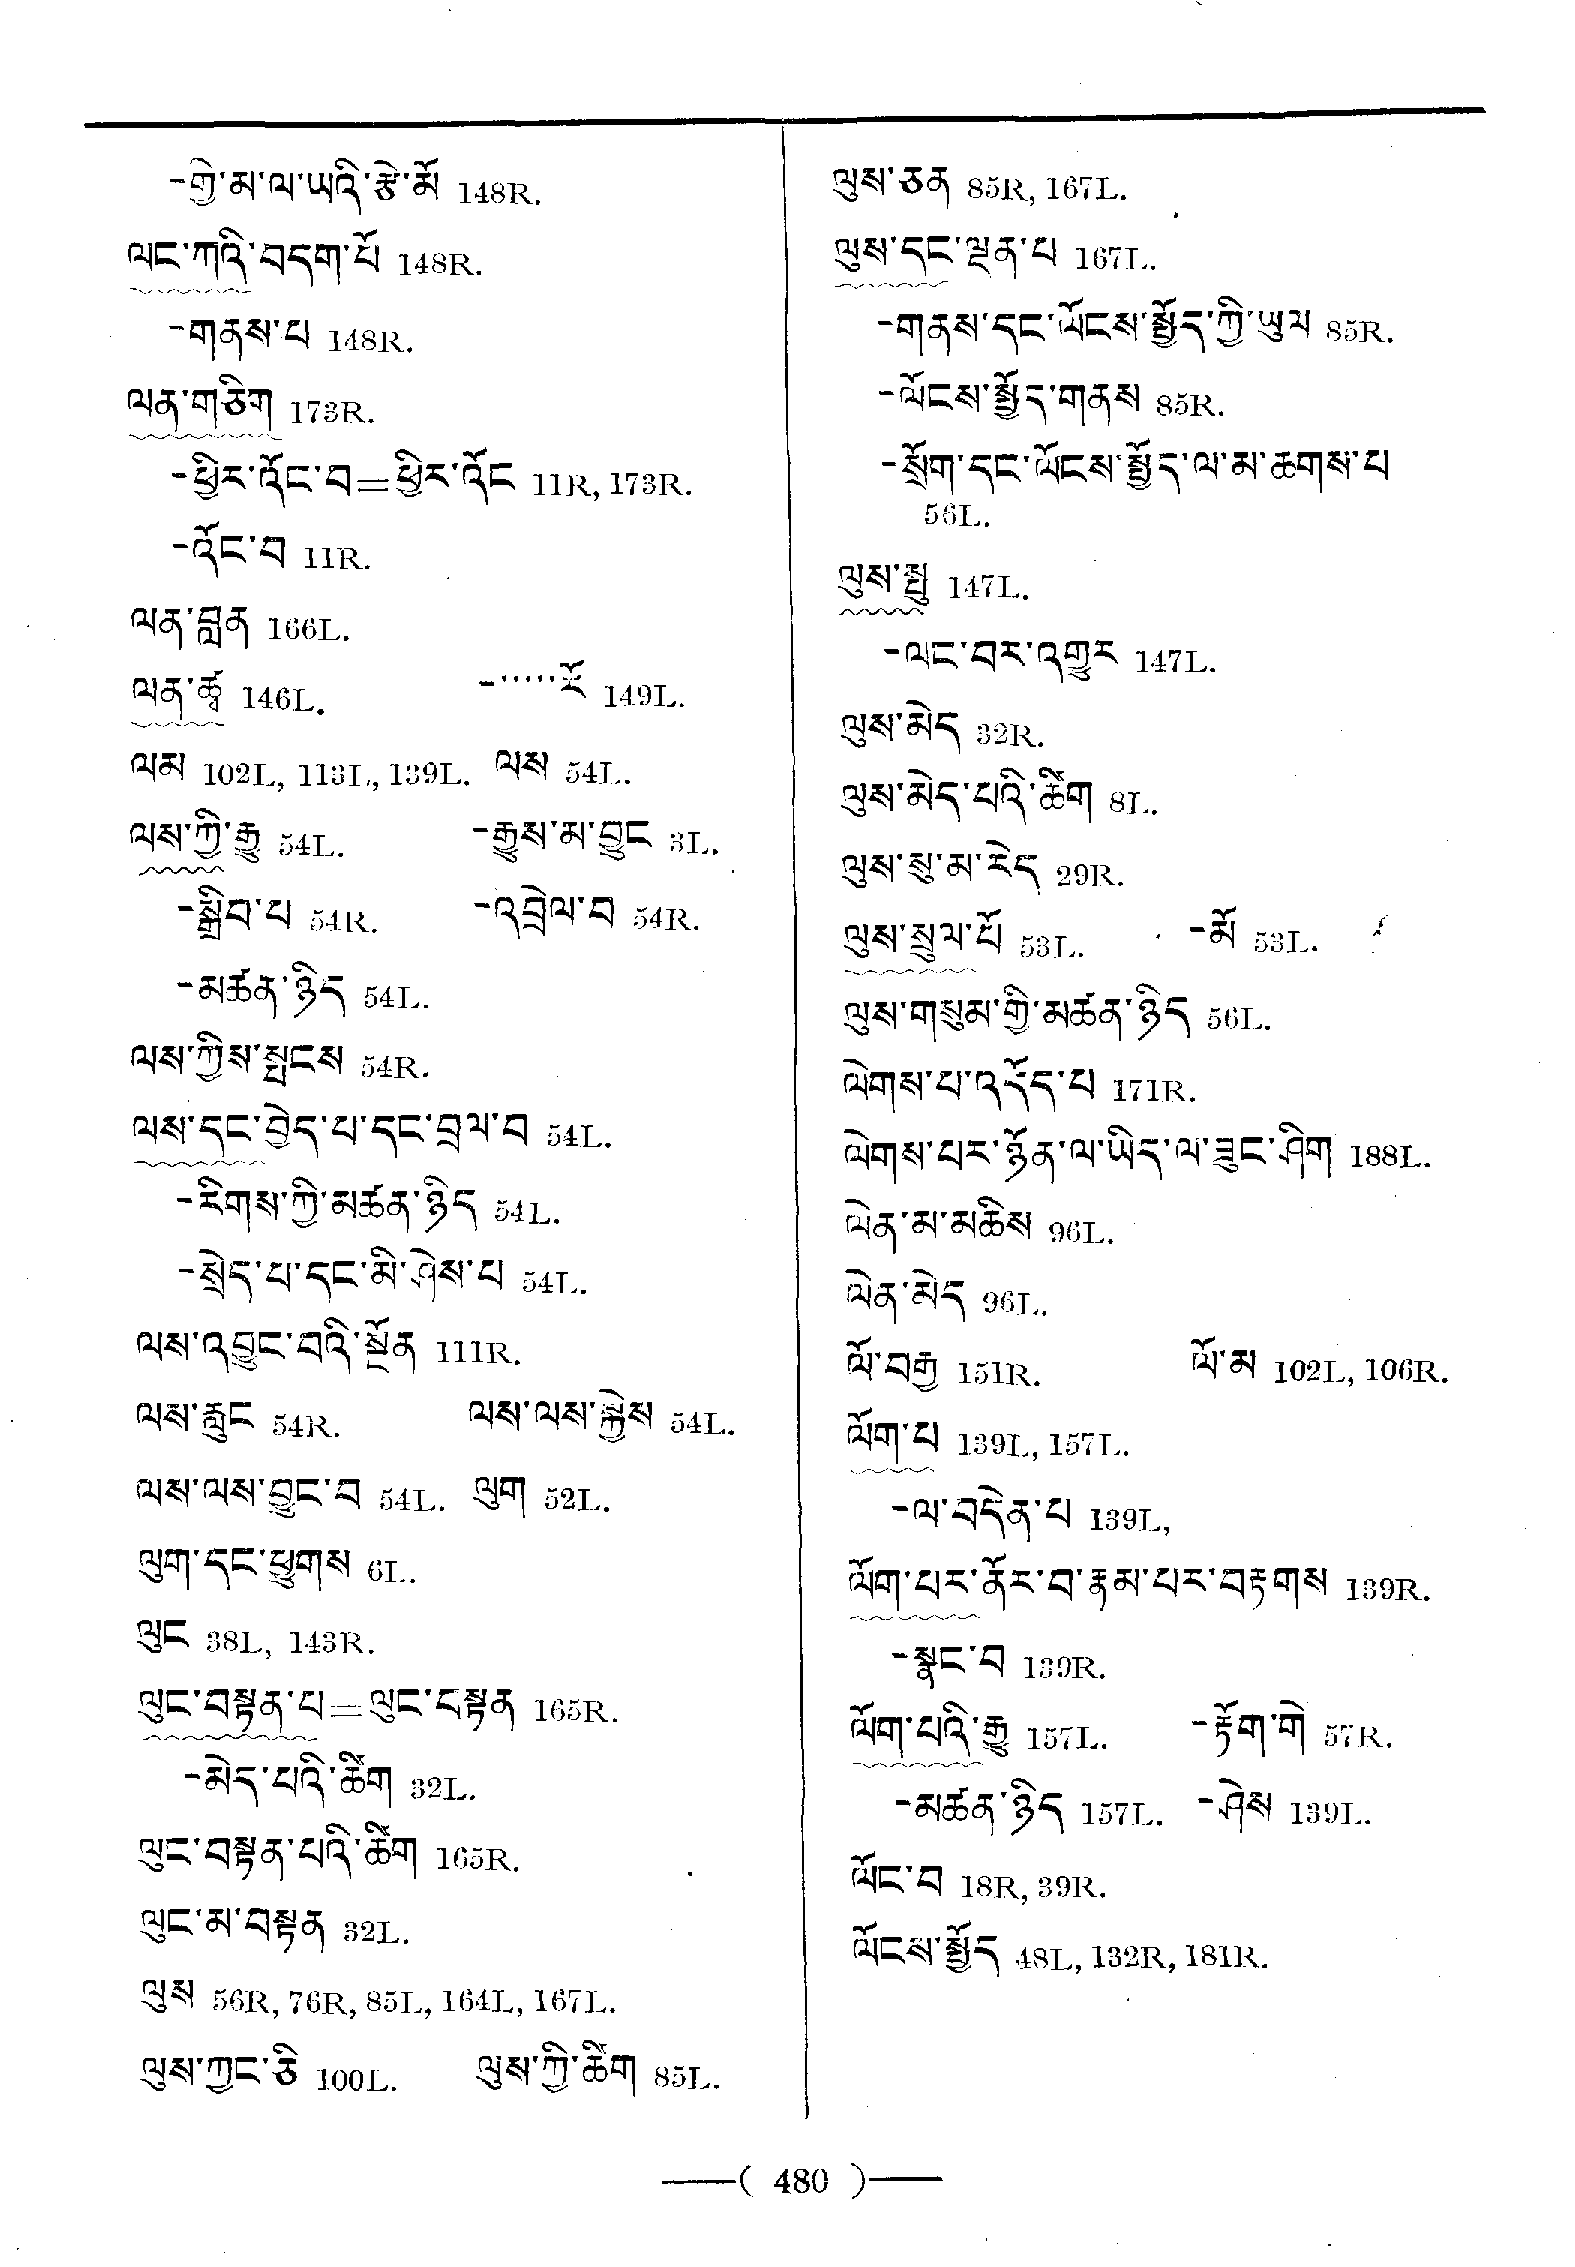 -གྱི་མ་ལ་ཡའི་རྩེ་མོ 148R.
ལང་ཀའི་བདག་པོ 148R.
-གནས་པ 148R.
ལན་གཅིག 173R.
-ཕྱིར་འོང་བ=ཕྱིར་འོང 11R, 173R.
-འོང་བ 11R.
ལན་བླན 166L.
ལན་ཚྭ 146L. -་་་་་ངོ 149L.
ལམ 102L, 113L, 139L. ལས 54L.
ལས་ཀྱི་རྒྱུ 54L. -རྒྱུས་མ་བྱུང 3L.
-སྒྲིབ་པ 54R. -འབྲེལ་བ 54R.
-མཚན་ཉིད 54L.
ལས་ཀྱིས་སྤྲངས 54R.
ལས་དང་བྱེད་པ་དང་བྲལ་བ 54L.
-རིགས་ཀྱི་མཚན་ཉིད 54L.
-སྲེད་པ་དང་མི་ཤེས་པ 54L.
ལས་འབྱུང་བའི་སྔོན 111R.
ལས་རླུང 54R. ལས་ལས་སྐྱེས 54L.
ལས་ལས་བྱུང་བ 54L. ལུག 52L.
ལུག་དང་ཕྱུགས 6L.
ལུང 38L, 143R.
ལུང་བསྟན་པ=ལུང་བསྟན 165R.
-མེད་པའི་ཚིག 32L.
ལུང་བསྟན་པའི་ཚིག 165R.
ལུང་མ་བསྟན 32L.
ལུས 56R, 76R, 85L, 164L, 167L.
ལུས་ཀྱང་ཅི 100L. ལུས་ཀྱི་ཚིག 85L.
ལུས་ཅན 85R, 167L.
ལུས་དང་ལྡན་པ 167L.
-གནས་དང་ལོངས་སྤྱོད་ཀྱི་ཡུལ 85R.
-ལོངས་སྤྱོད་གནས 85R.
-སྲོག་དང་ལོངས་སྤྱོད་ལ་མ་ཆགས་པ
56L.
ལུས་སྤུ 147L.
-ལང་བར་འགྱུར 147L.
ལུས་མེད 32R.
ལུས་མེད་པའི་ཚིག 8L.
ལུས་སུ་མ་རེད 29R.
ལུས་སྲུལ་པོ 53L. -མོ 53L.
ལུས་གསུམ་གྱི་མཚན་ཉིད 56L.
ལེགས་པ་འདོད་པ 171R.
ལེགས་པར་ཉོན་ལ་ཡིད་ལ་ཟུང་ཤིག 188L.
ལེན་མ་མཆིས 96L.
ལེན་མེད 96L.
ལོ་བརྒྱ 151R. ལོ་མ 102L, 106R.
ལོག་པ 139L, 157L.
-ལ་བདེན་པ 139L,
ལོག་པར་ནོར་བ་རྣམ་པར་བརྟགས 139R.
-སྣང་བ 139R.
ལོག་པའི་རྒྱུ 157L. -རྟོག་གེ 57R.
-མཚན་ཉིད 157L. -ཤེས 139L.
ལོང་བ 18R, 39R.
ལོངས་སྤྱོད 48L, 132R, 181R.
( 480 )